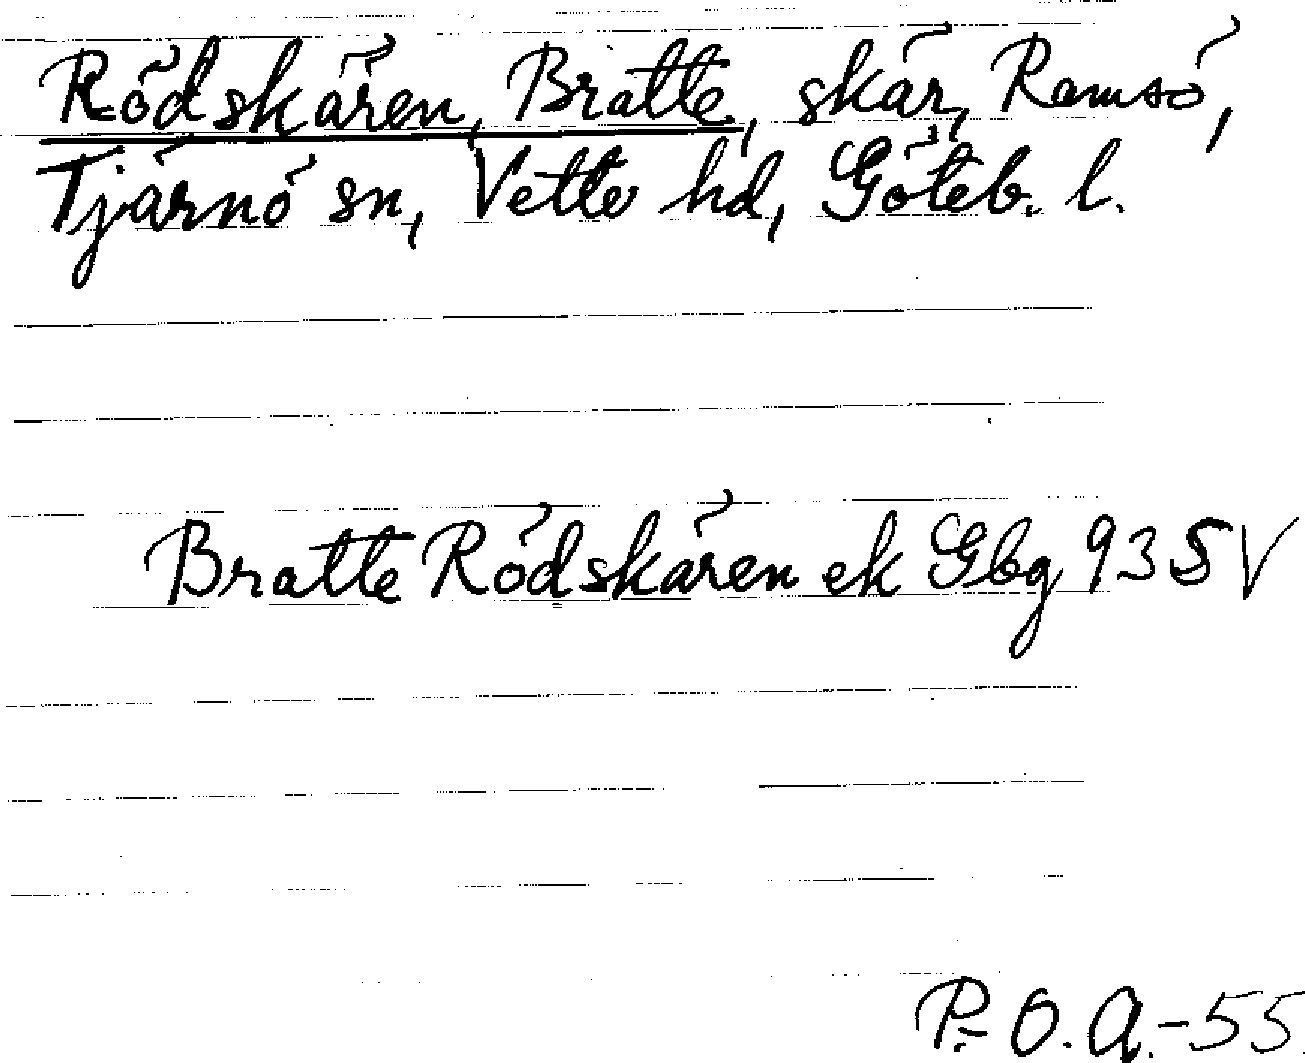 Rödskären, Bratte, skär, Ramsö,
Tjärnö sn, Vette hd, Göteb. l.
Bratte Rödskären ek Gbg 93 SV
P. O. A.-55